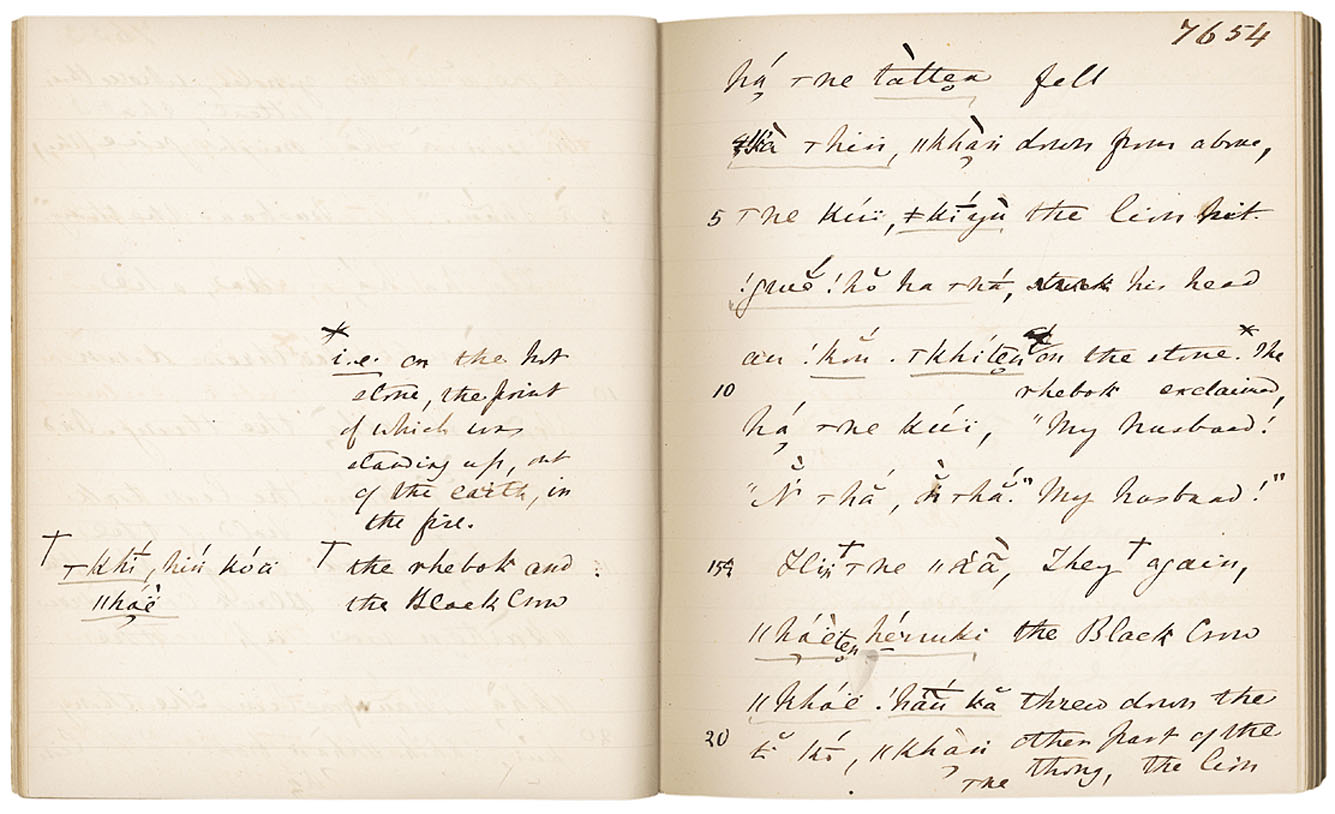 *
i.e. on the hot
stone, the point
of which was
standing up, out
of the earth, in
the fire.
† ⊤khī́, hiń kóä
ǁháë
† the rhebok and
the Black Crow
7654
há̦ ⊤ne tàtten fell
⊤hiń, ǁkhà̦n down from above,
5 ⊤ne kúï, ǂkī́yù the lion hit
!guĕ́ !hŏ ha ⊤há, his head
au !kŏú. ⊤khíten on the stone.* The
rhebok exclaimed,
10 há̦ ⊤ne kúï, "My husband!
"Ň ⊤hă, ň ⊤hă." My husband!"
15 Hiń† ⊤ne ǁx̱à̄, They† again,
ǁháëten hérruki the Black Crow
ǁkháë !hā́ŭ kă threw down the
20 tĭ kó, ǁkhà̦n other part of the
⊤ne thong, the lion